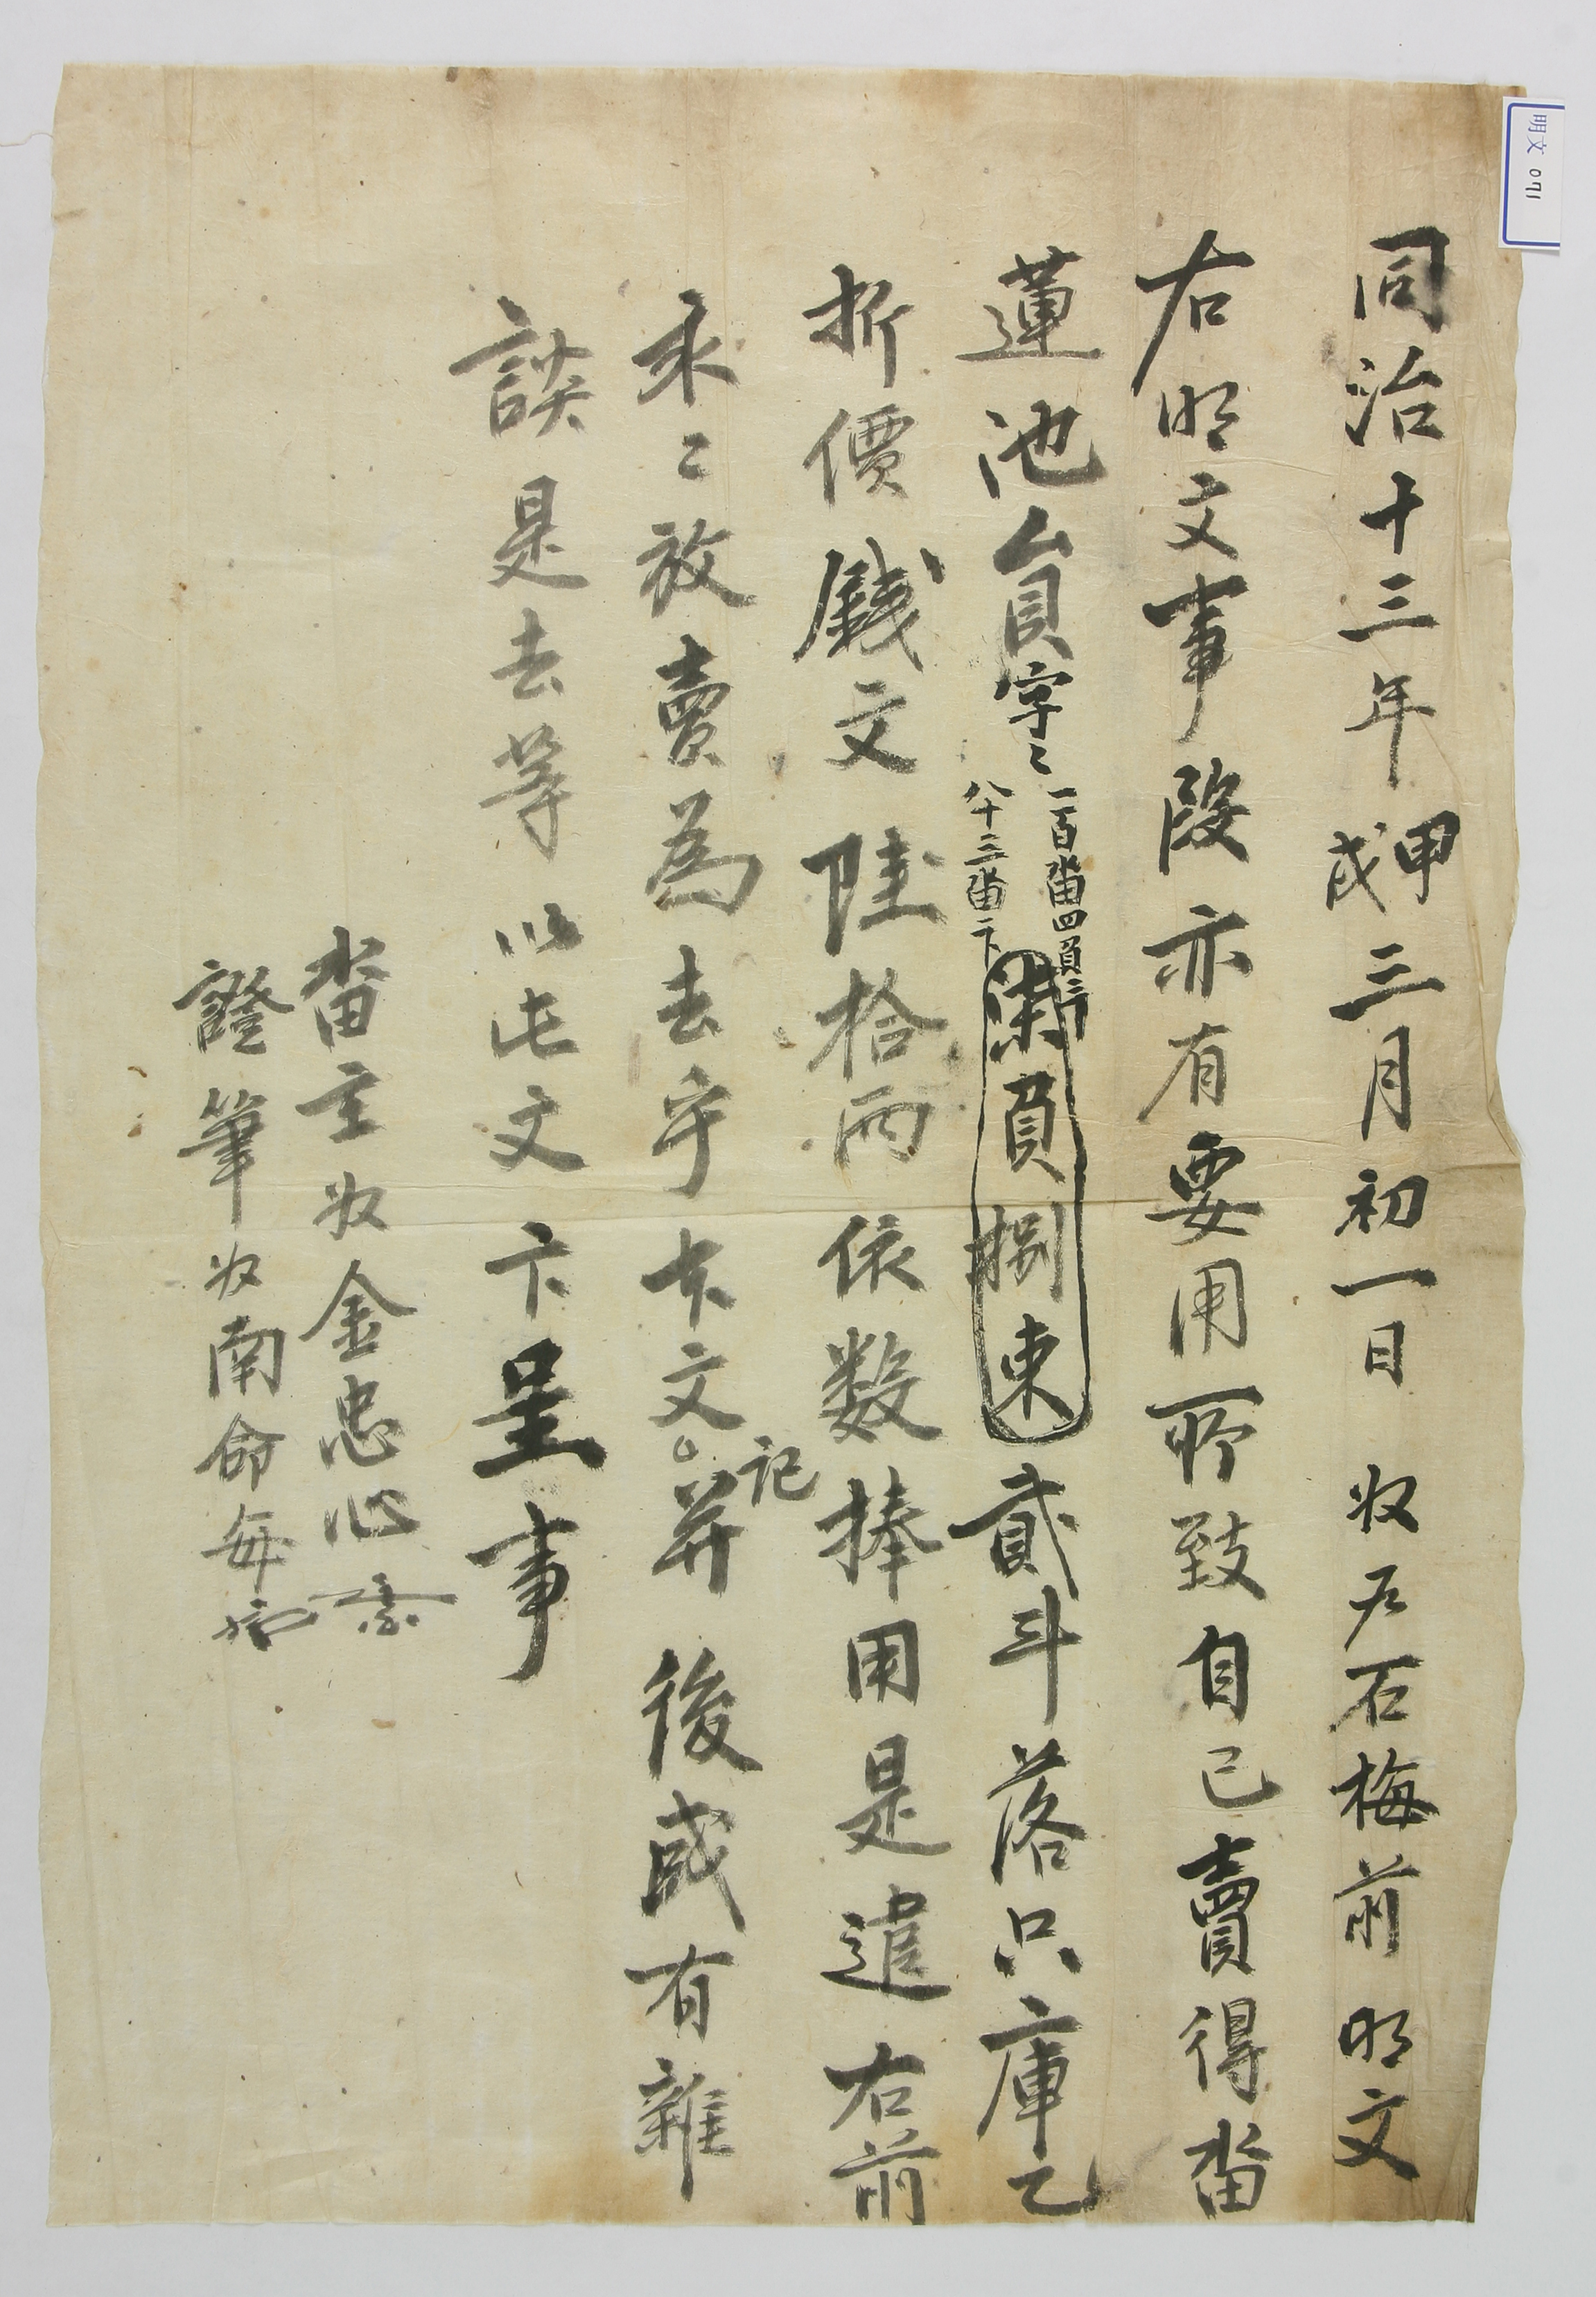 明文 071
同治十三年甲戌三月初一日 奴尹石梅前 明文
右明文事段亦有要用所致自己賣得畓
蓮池員字〻
一百畓四負三卜
八十二畓二卜
柒負捌束
貳斗落只庫乙
折價錢文陸拾兩依数捧用是遣右前
永〻放賣為去乎本文記并 後或有雜
談是去等以此文卞呈事
畓主奴金忠心
證筆奴南命每